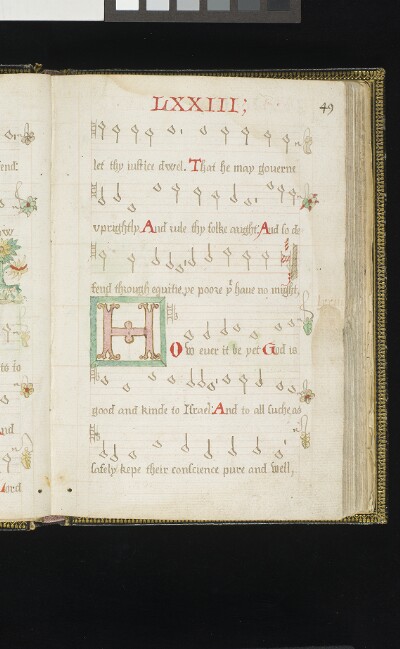 LXXIII;
49
let thy iustice dwel. That he may gouerne
vprightly And rule thy folke aright, And so de
fend through equitie, ye poore yt haue no might,
HOw euer it be yet God is
good and kinde to Israel: And to all suche as
safely kepe their conscience pure and well,
fend:
ow
ts to
And
Lord